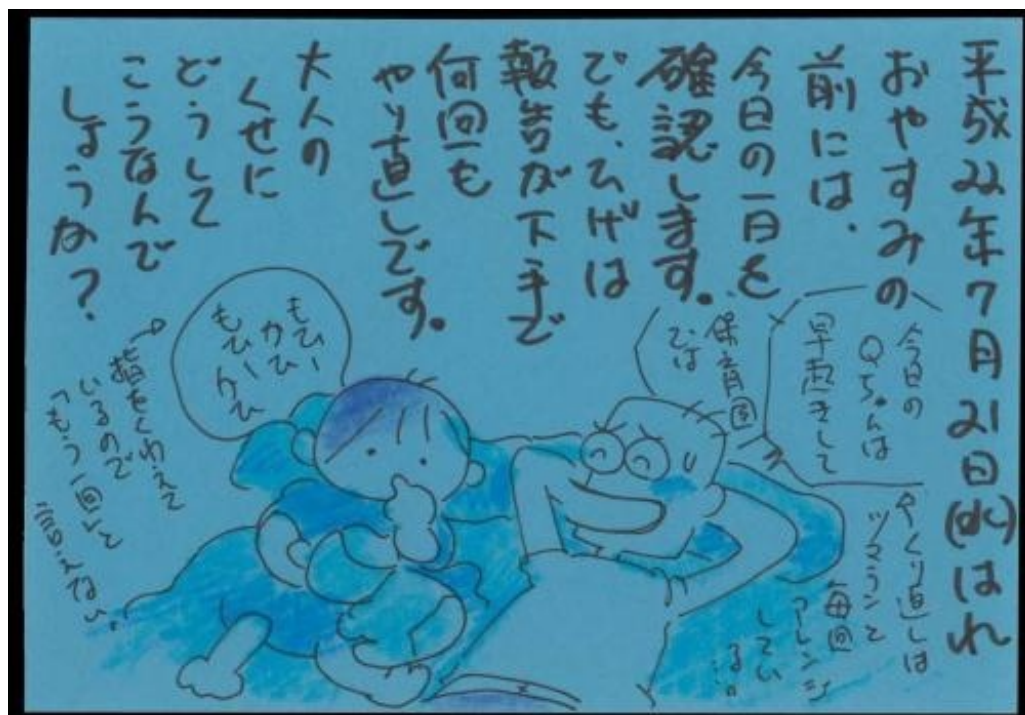 平成22年7月21日(水)はれ
おやすみの
前には、
今日の一日を
確認します。
でも、ひげは
報告が下手で
何回も
やり直しです。
大人の
くせに
どうして
こうなんで
しょうか?
今日の
Qちゃんは
早起きして
保育園
では
やくり直しは
ツマランと
毎回
アレンジ
してい
る。
もひー
かひ
もひーかひ
→指をくわえて
いるので
「もう一回」と
言えない。